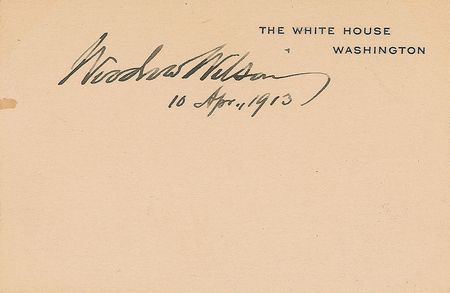 THE WHITE HOUSE
WASHINGTON
Woodrow Wilson
10 Apr., 1913